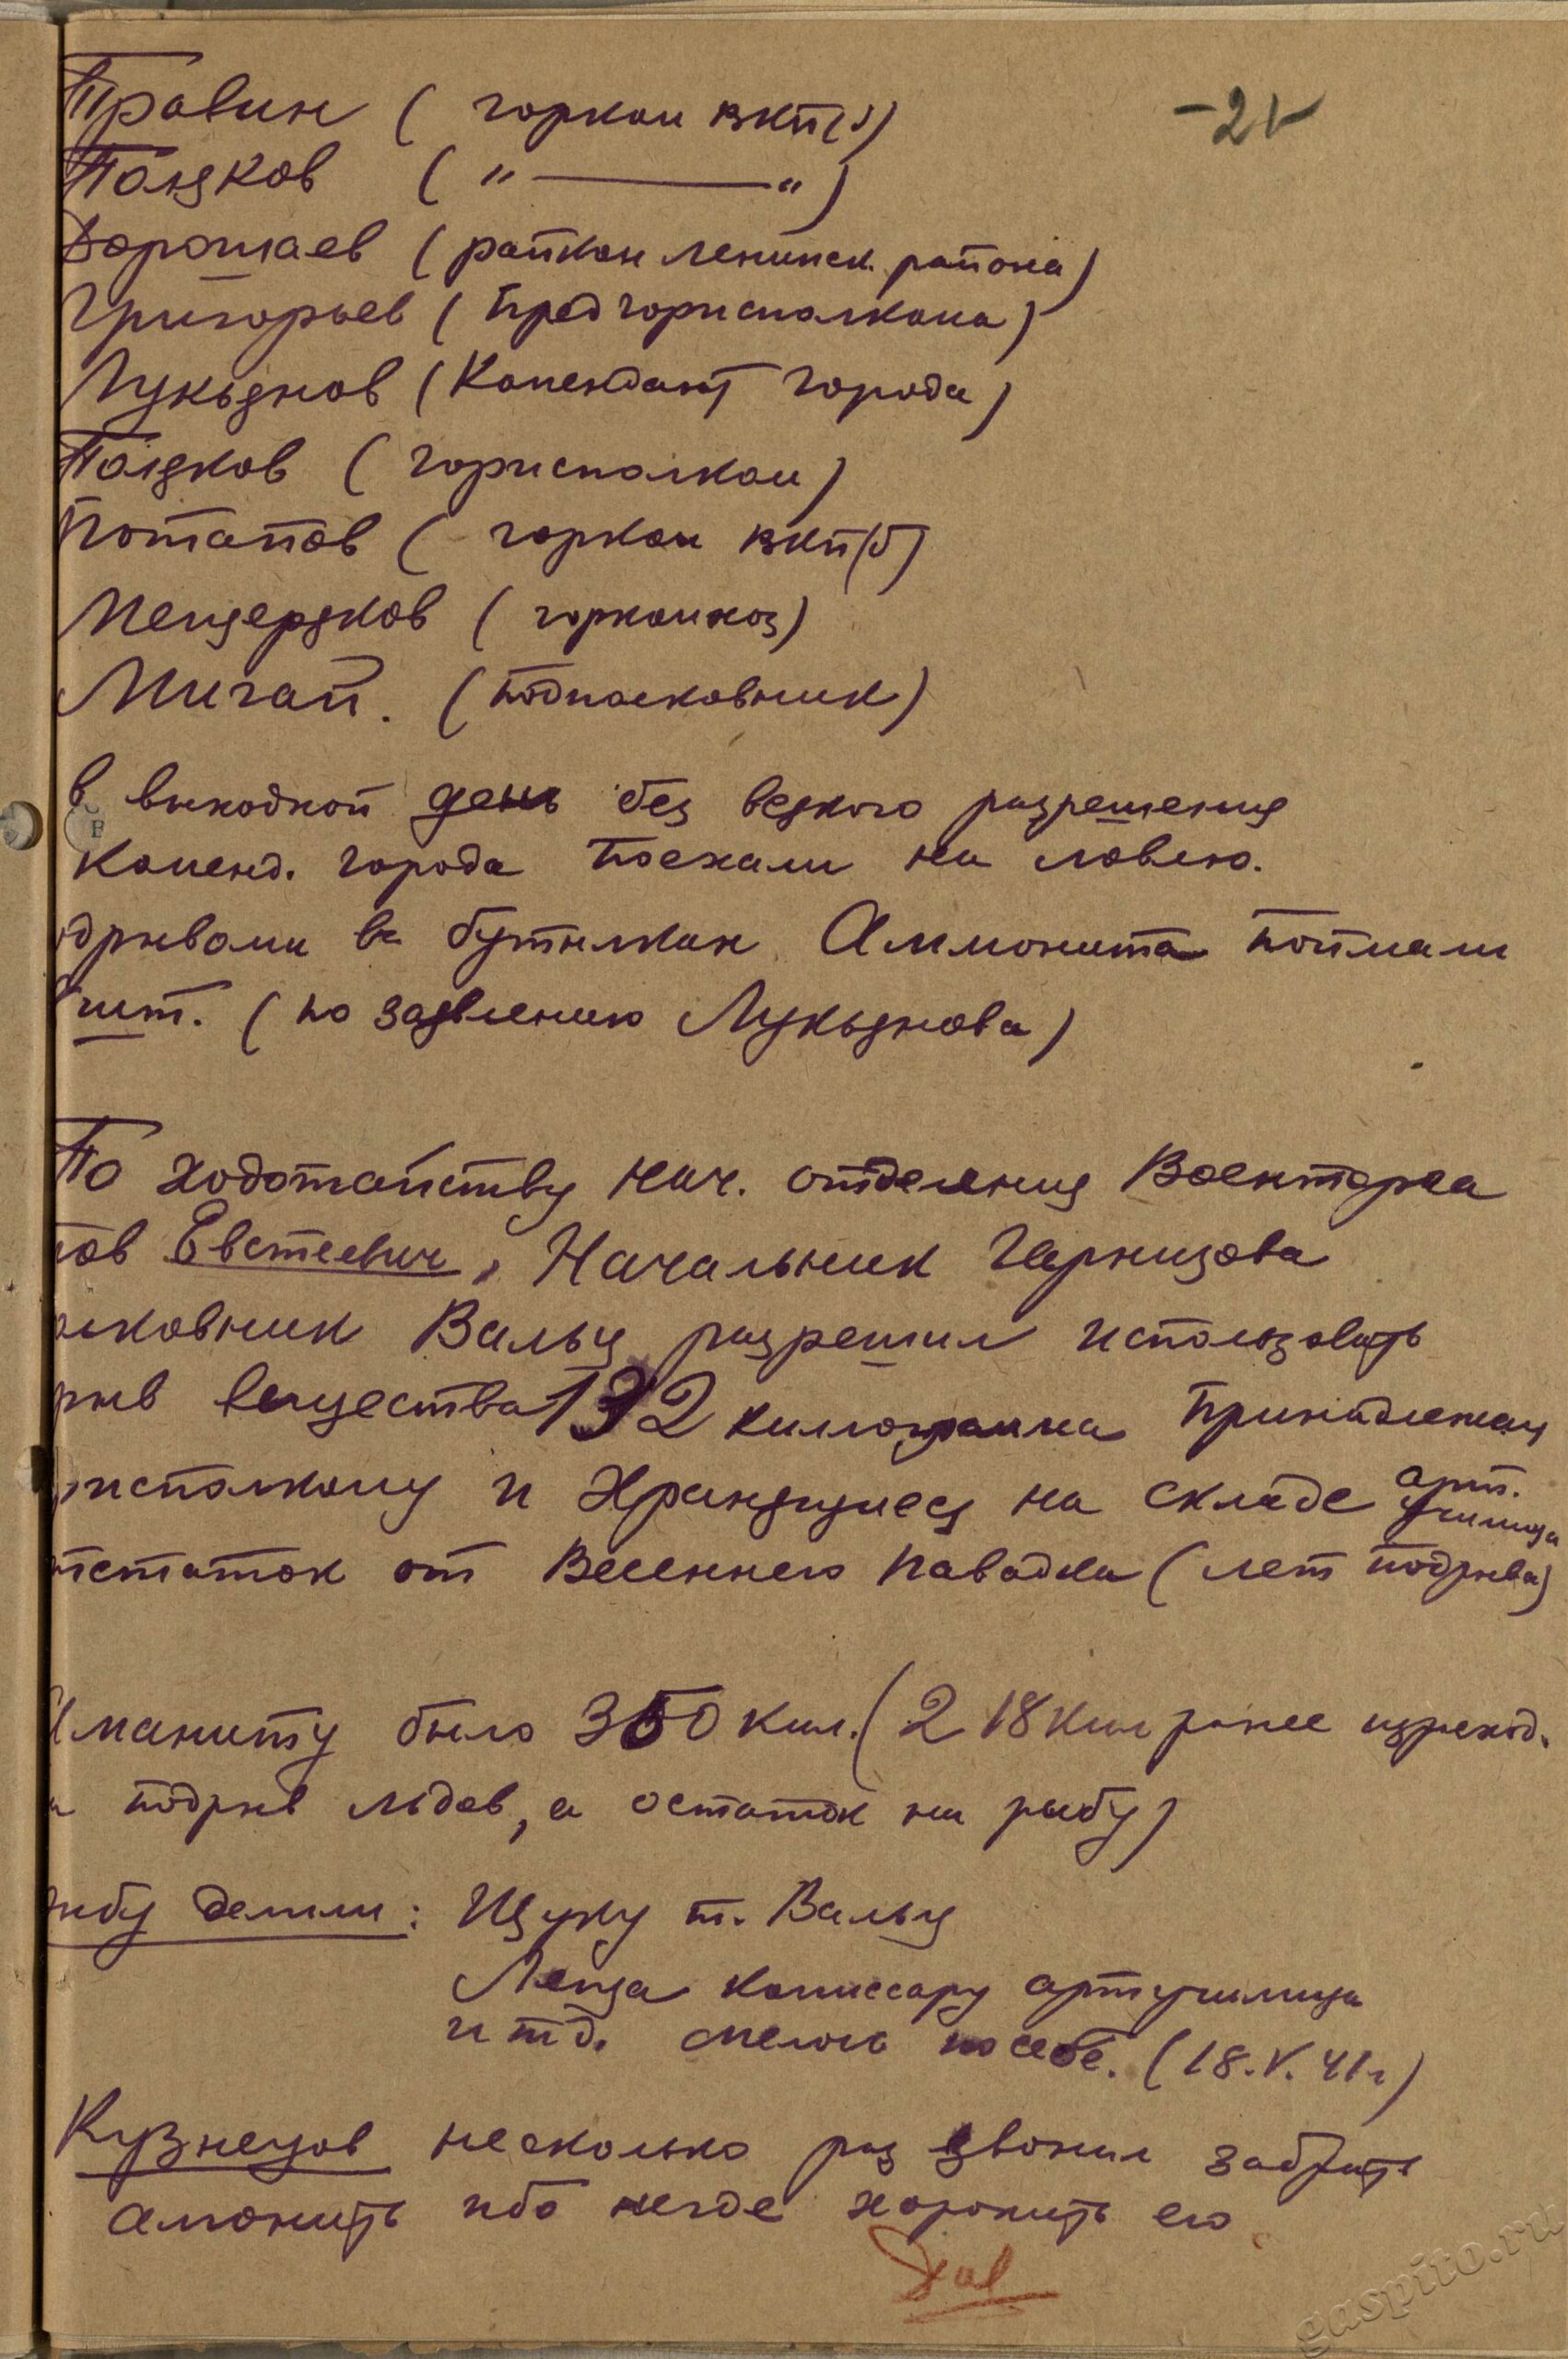 -21-
Правин ( горком ВКП(б)
Поляков ( " ——— " )
Ворошаев ( райком Ленинск. района)
Григорьев ( Предгорисполкома)
Лукьянов ( Комендант города)
Поляков ( горисполком)
Потапов ( горком ВКП(б)
Мещеряков ( горкомхоз)
Мигай. ( подполковник)
в выходной день без всякого разрешения
Коменд. города поехали на ловлю.
дрывами в бутылках Аммонита поймали
шт. ( по заявлению Лукьянова)
По ходотайству нач. отделения Военторга
тов Евстеевич, Начальник Гарнизова
лковник Вальц разрешил использовать
рыв вещества 132 килограмма принадлежащ
рисполкому и Хранящиеся на складе арт. училища
остаток от Весеннего паводка (лет подрыва)
Аманиту было 350 кил. (218 кил ранее израсход.
а подрыв льдов, а остаток на рыбу)
рыбу делили: Щуку т. Вальц
Леща комиссару артучилища
и т д. мелочь по себе. (18.V.41г)
Кузнецов несколько раз звонил забрать
амонить ибо негде хоронить его
gaspito.ru